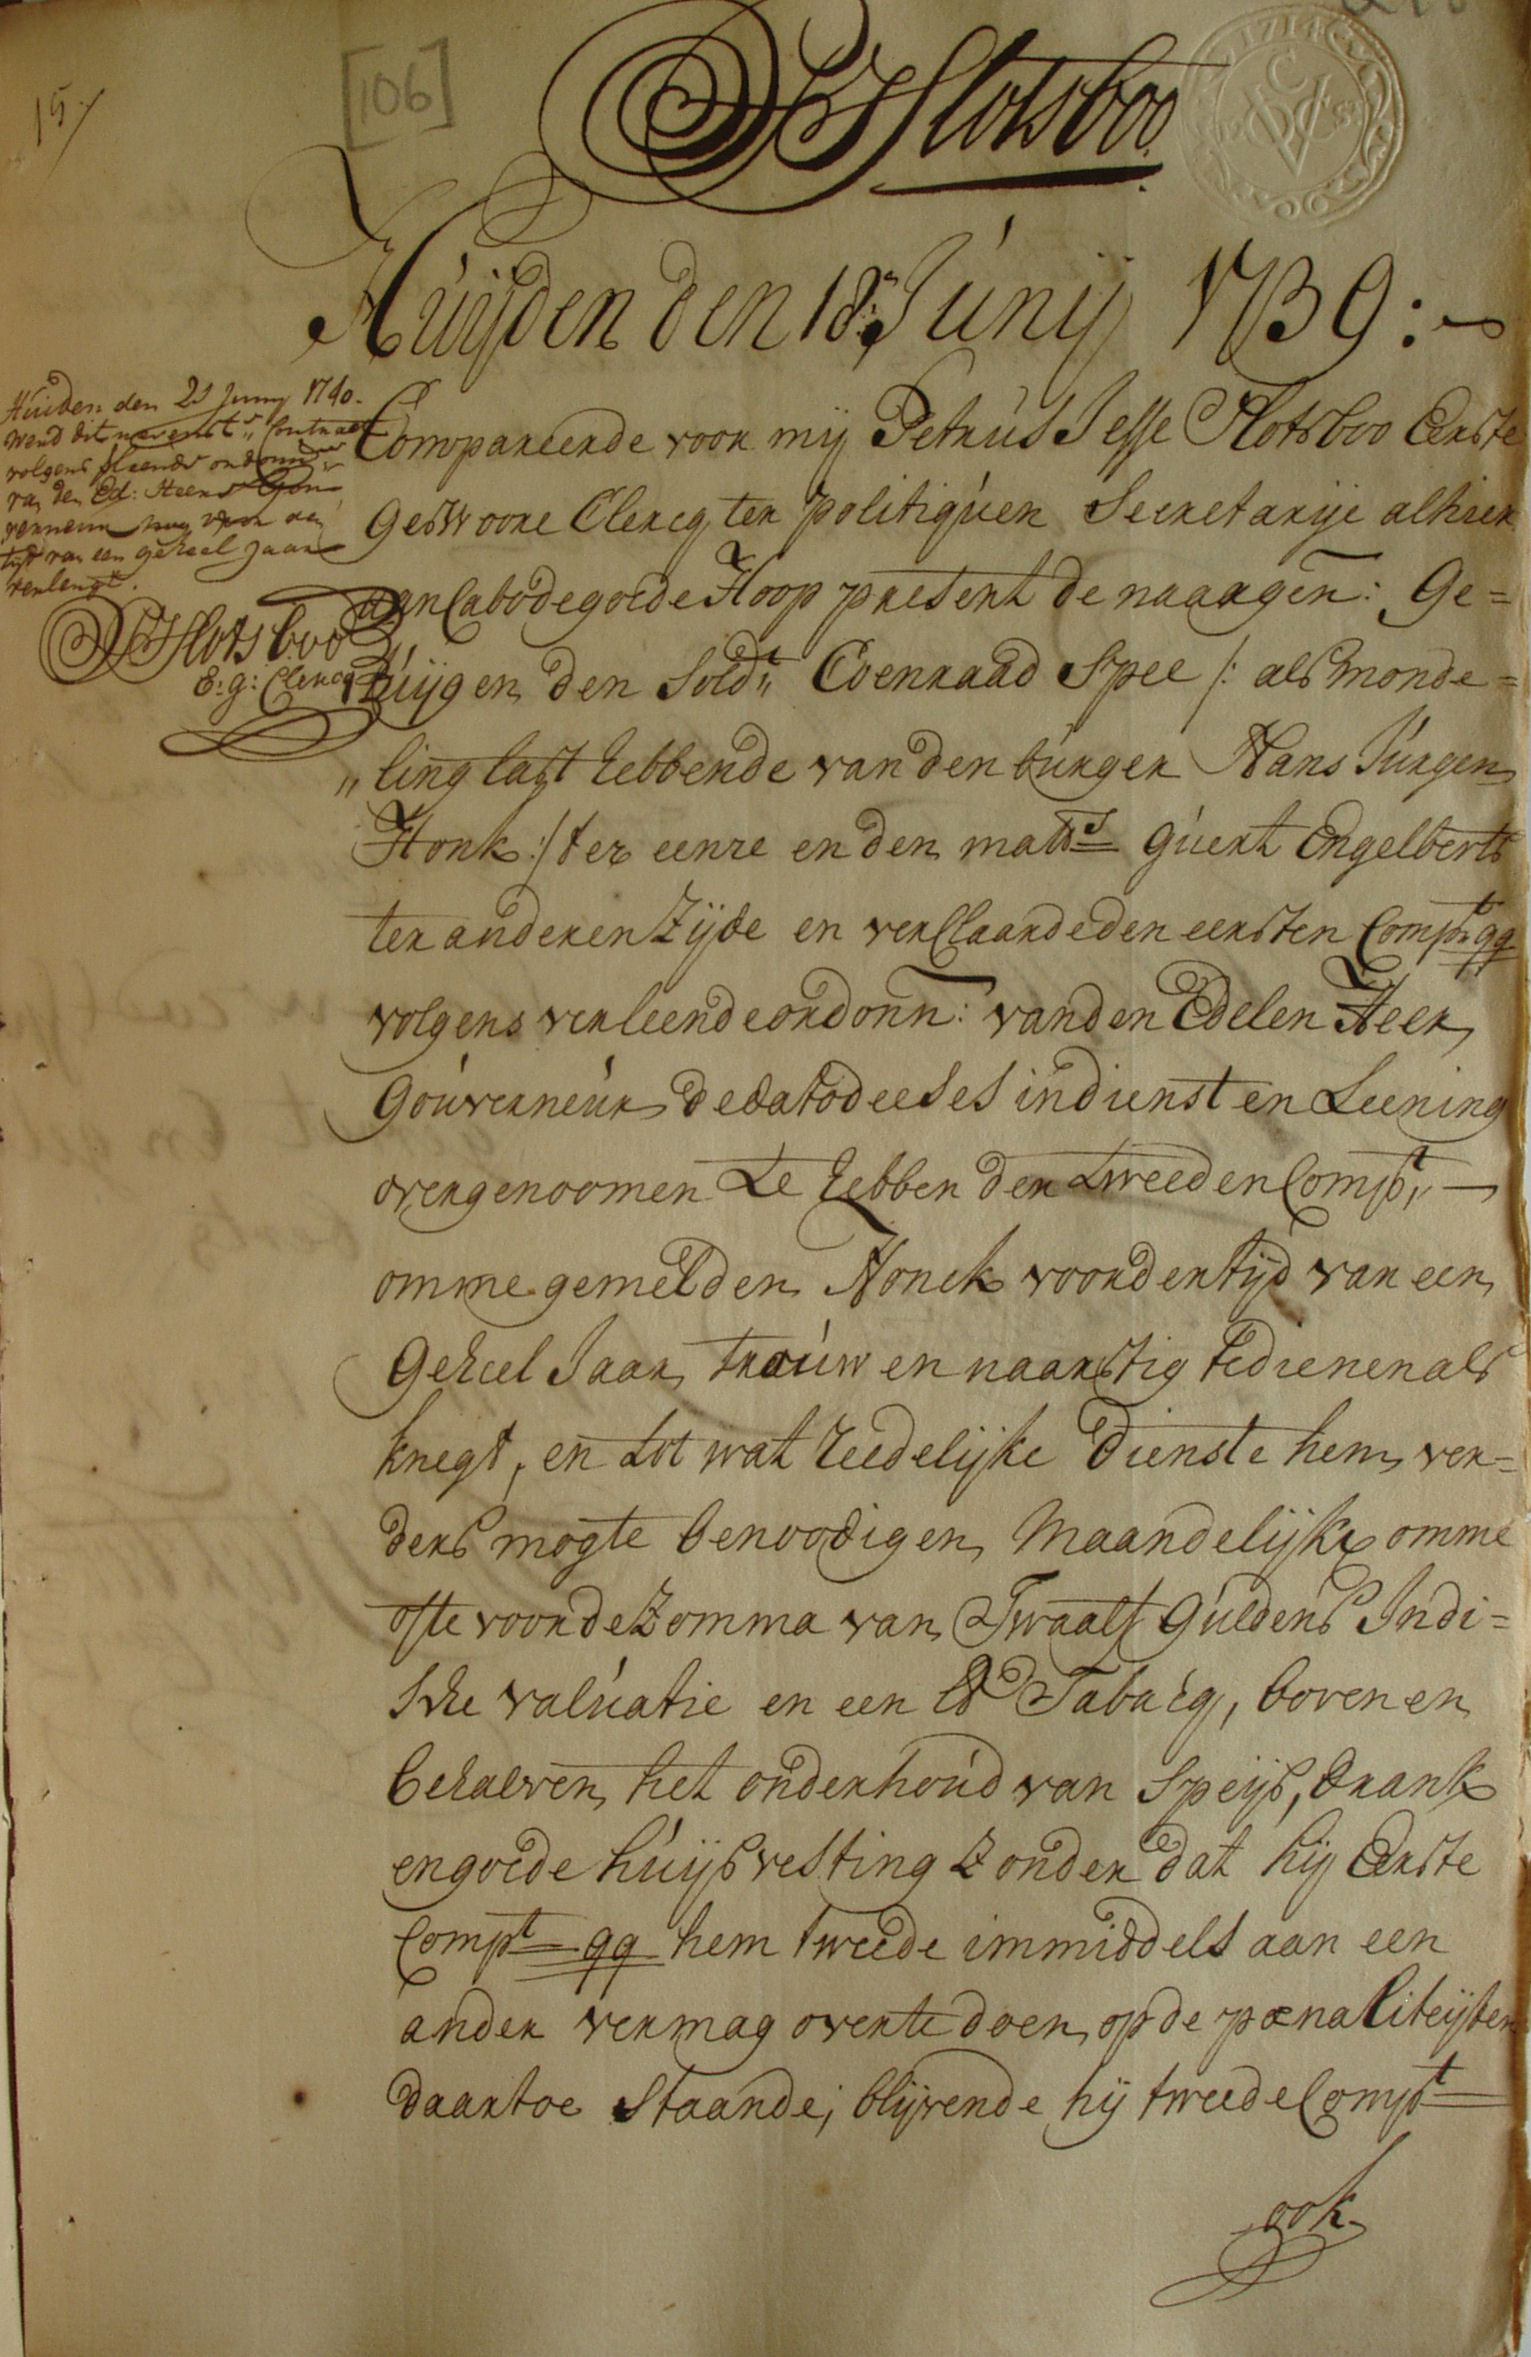 15/
[106]
PJSlotsboo.
1714
C
VOC
Huijden den 18:en Junij 1739:
Huiden den 21 Juny 1740.
werd dit nevenst: Contract
volgens ordonn
van den Ed: Heer Gou
verneur nog voor den
tijt van een geheel Jaar
verlengt.
PJSlotsboo
E: g: Clercq
Compareerde voor mij Petrus Jesse Slotsboo Eerste
geswoore Clercq ter politiquen Secretarije alhier
aan Cabo de goede Hoop present de naargen: Ge=
tuijgen den Sold:t Coenraad Spee /: als monde=
„ling last hebbende van den burger Hans Jurgen
Honk :/ ter eenre en den matr:s Guert Engelberts
ter anderen Zijde en verclaarde den eersten Comp:t qq
volgens verleende ordonn: van den Edelen Heer
Gouverneur de dato deeses in dienst en Leening
overgenoomen te hebben den tweeden Comp:t —
omme gemelden Honck voor den tijd van een
geheel Jaar, trouw en naarstig te dienen als
knegt, en tot wat reedelijke dienste hem ver=
ders mogte benoodigen, Maandelijkx omme
ofte voor de Zomma van Twaalf Guldens Indi=
sche valuatie en een lb Tabacq, boven en
behalven het onderhoud van Speijs, drank
en goede huijsvesting Zonder dat hij Eerste
Comp:t qq hem tweede immiddels aan een
ander vermag over te doen, op de pœnaliteijten
daartoe Staande; blijvende hij tweede Comp:t
ook